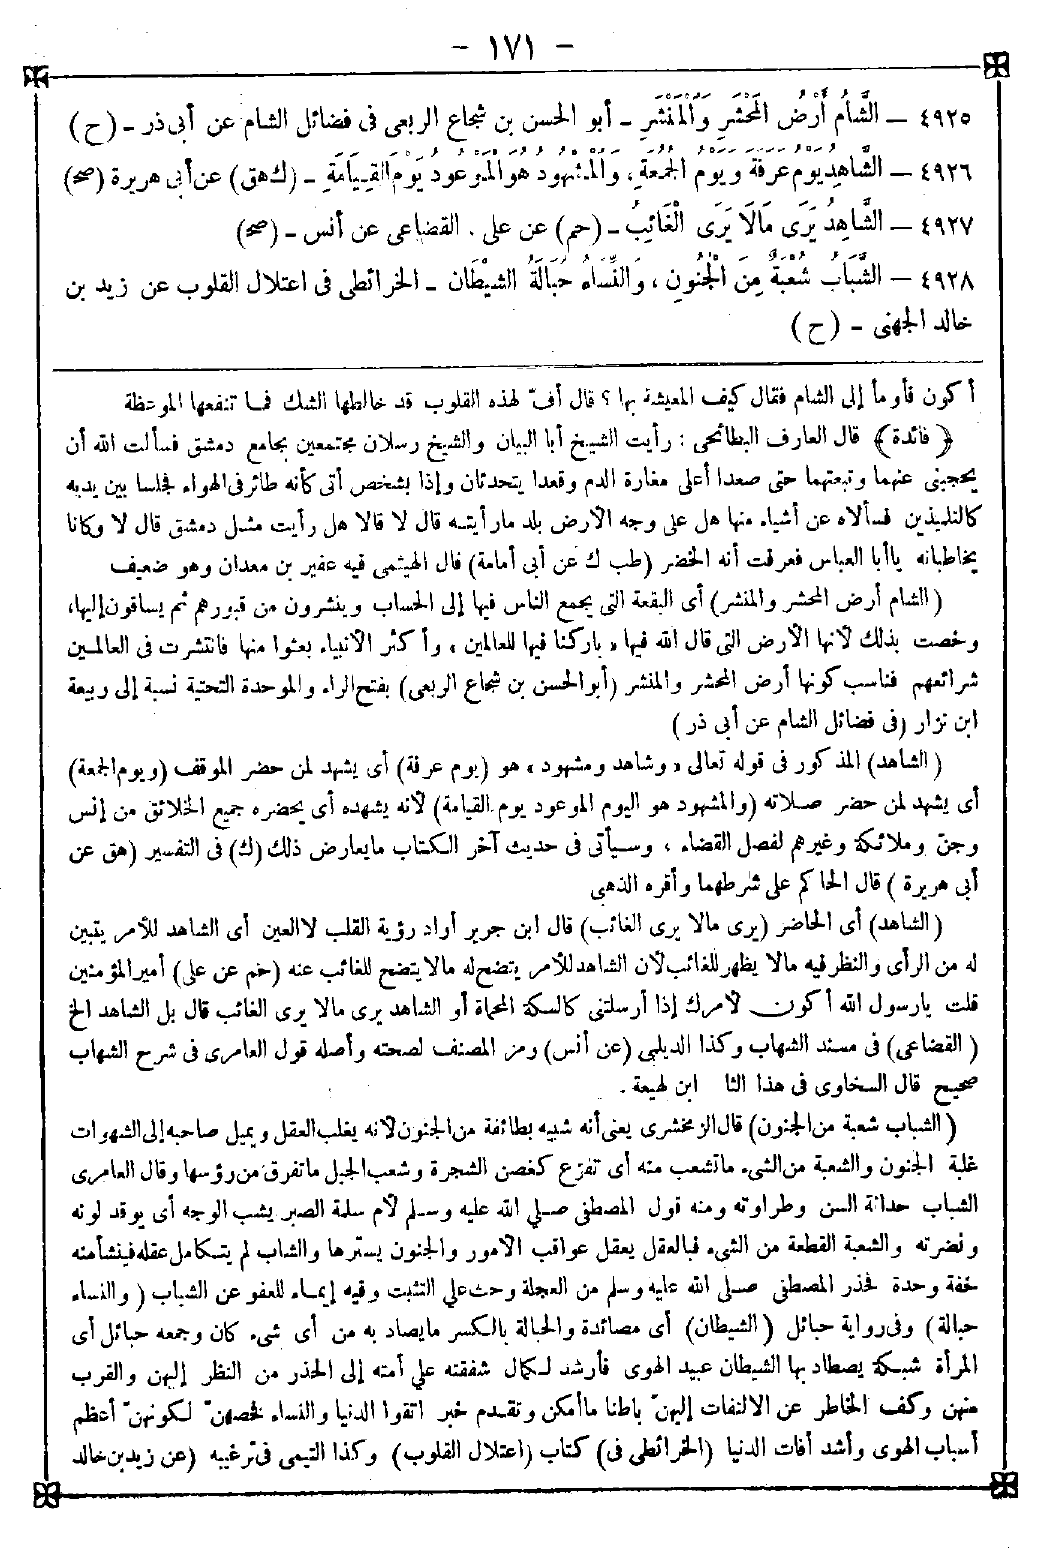 - ١٧١ -
٤٩٢٥ — الشَّامُ أَرْضُ المَحْشَرِ وَالْمَنْشَرِ - أبو الحسن بن شجاع الربعى فى فضائل الشام عن أبى ذر - (ح)
٤٩٢٦ — الشَّاهِدُ يَوْمُ عَرَفَةَ وَيَوْمُ الجُمُعَةِ، وَالْمَشْهُودُ هُوَ المَوْعُودُ يَوْمَ الْقِيَامَةِ - (ك هق) عن أبى هريرة (صحـ)
٤٩٢٧ — الشَّاهِدُ يَرَى مَالَا يَرَى الْغَائِبُ - (حم) عن على . القضاعى عن أنس - (صحـ)
٤٩٢٨ — الشَّبَابُ شُعْبَةٌ مِنَ الْجُنُونِ ، وَالنِّسَاءُ حُبَالَةُ الشَّيْطَانِ - الخرائطى فى اعتلال القلوب عن زيد بن
خالد الجهنى - (ح)
أكون فأومأ إلى الشام فقال كيف المعيشة بها ؟ قال أفّ لهذه القلوب قد خالطها الشك فما تنفعها الموعظة
﴿ فائدة ﴾ قال العارف البطائحى : رأيت الشيخ أبا البيان والشيخ رسلان مجتمعين بجامع دمشق فسألت الله أن
يحجبنى عنهما وتبعتهما حتى صعدا أعلى مغارة الدم وقعدا يتحدثان وإذا بشخص أتى كأنه طائر فى الهواء فجلسا بين يديه
كالتلميذين فسألاه عن أشياء منها هل على وجه الأرض بلد مارأيته قال لا قالا هل رأيت مثل دمشق قال لا وكانا
يخاطبانه ياأبا العباس فعرفت أنه الخضر (طب ك عن أبى أمامة) قال الهيثمى فيه عفير بن معدان وهو ضعيف
(الشام أرض المحشر والمنشر) أى البقعة التى يجمع الناس فيها إلى الحساب وينشرون من قبورهم ثم يساقون إليها،
وخصت بذلك لأنها الأرض التى قال الله فيها «باركنا فيها للعالمين» وأكثر الأنبياء بعثوا منها فانتشرت فى العالمين
شرائعهم فناسب كونها أرض المحشر والمنشر (أبو الحسن بن شجاع الربعى) بفتح الراء والموحدة التحتية نسبة إلى ربيعة
ابن نزار (فى فضائل الشام عن أبى ذر)
(الشاهد) المذكور فى قوله تعالى «وشاهد ومشهود» هو (يوم عرفة) أى يشهد لمن حضر الموقف (ويوم الجمعة)
أى يشهد لمن حضر صلاته (والمشهود هو اليوم الموعود يوم القيامة) لأنه يشهده أى يحضره جميع الخلائق من إنس
وجنّ وملائكة وغيرهم لفصل القضاء ، وسيأتى فى حديث آخر الكتاب مايعارض ذلك (ك) فى التفسير (هق عن
أبى هريرة ) قال الحاكم على شرطهما وأقره الذهبى
(الشاهد) أى الحاضر (يرى مالا يرى الغائب) قال ابن جرير أراد رؤية القلب لاالعين أى الشاهد للأمر يتبين
له من الرأى والنظر فيه مالا يظهر للغائب لأن الشاهد للأمر يتضح له مالا يتضح للغائب عنه (حم عن على) أمير المؤمنين
قلت يارسول الله أكون لأمرك إذا أرسلتنى كالسكة المحماة أو الشاهد يرى مالا يرى الغائب قال بل الشاهد الخ
( القضاعى) فى مسند الشهاب وكذا الديلمى (عن أنس) رمز المصنف لصحته وأصله قول العامرى فى شرح الشهاب
صحيح قال السخاوى فى هذا الثا ابن لهيعة .
(الشباب شعبة من الجنون) قال الزمخشرى يعنى أنه شبيه بطائفة من الجنون لأنه يغلب العقل ويميل صاحبه إلى الشهوات
غلبة الجنون والشعبة من الشىء ماتشعب منه أى تفرّع كغصن الشجرة وشعب الجبل ماتفرق من رؤسها وقال العامرى
الشباب حداثة السن وطراوته ومنه قول المصطفى صلى الله عليه وسلم لأم سلمة الصبر يشب الوجه أى يوقد لونه
ونضرته والشعبة القطعة من الشىء فبالعقل يعقل عواقب الأمور والجنون يسترها والشاب لم يتكامل عقله فينشأ منه
خفة وحدة فحذر المصطفى صلى الله عليه وسلم من العجلة وحث على التثبت وفيه إيماء للعفو عن الشباب ( والنساء
حبالة) وفى رواية حبائل (الشيطان) أى مصائده والحبالة بالكسر مايصاد به من أى شىء كان وجمعه حبائل أى
المرأة شبكة يصطاد بها الشيطان عبيد الهوى فأرشد لكمال شفقته على أمته إلى الحذر من النظر إليهن والقرب
منهن وكف الخاطر عن الالتفات إليهنّ باطنا ماأمكن وتقدم خبر اتقوا الدنيا والنساء فخصهنّ لكونهنّ أعظم
أسباب الهوى وأشد آفات الدنيا (الخرائطى فى) كتاب (اعتلال القلوب) وكذا التيمى فى ترغيبه (عن زيد بن خالد